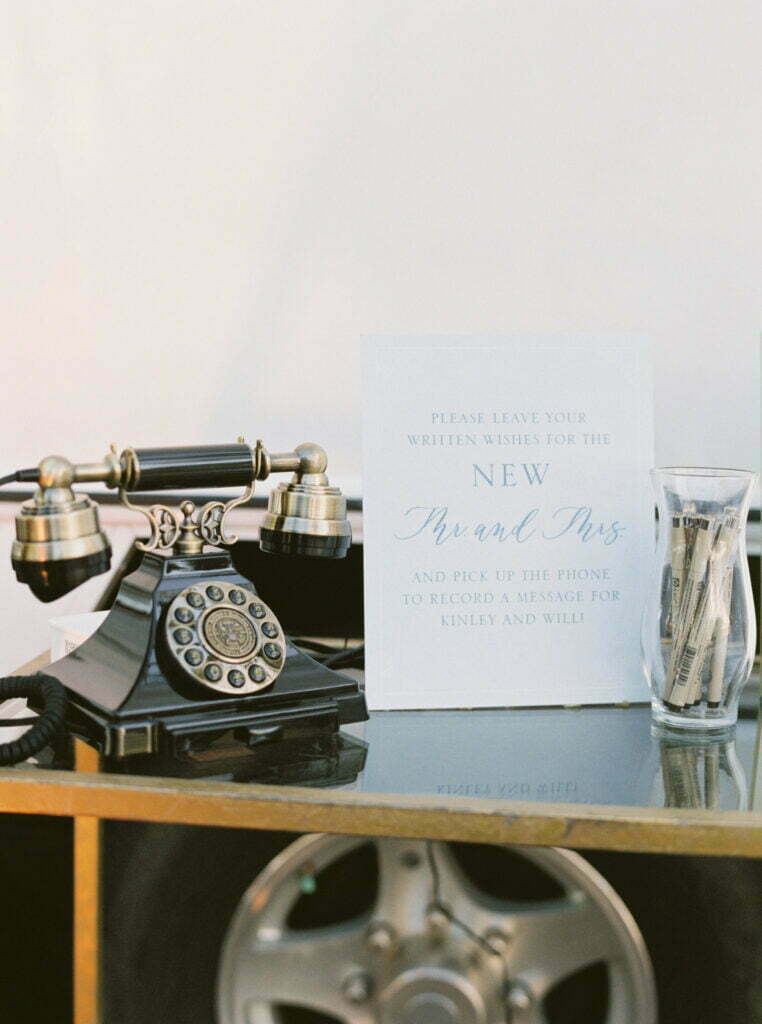 PLEASE LEAVE YOUR
WRITTEN WISHES FOR THE
NEW
Mr. and Mrs.
AND PICK UP THE PHONE
TO RECORD A MESSAGE FOR
KINLEY AND WILL!